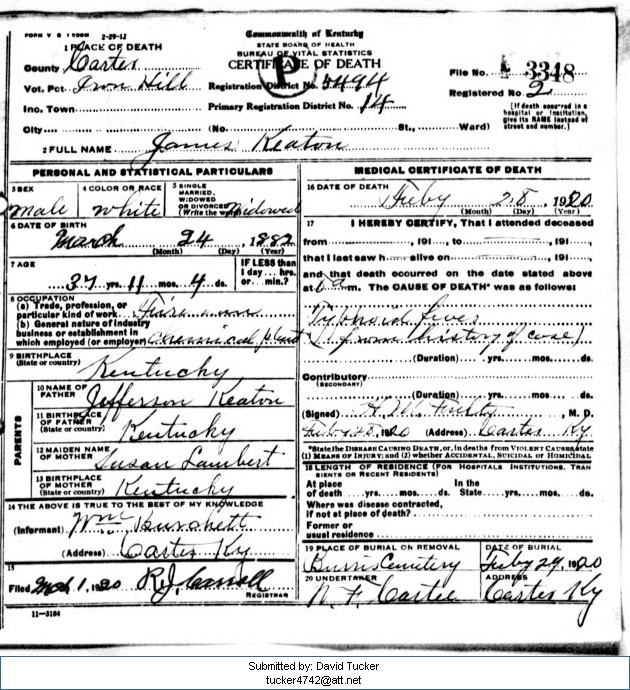 FORM V S 1 500M 2-29-12
Commonwealth of Kentucky
STATE BOARD OF HEALTH
BUREAU OF VITAL STATISTICS
CERTIFICATE OF DEATH
P
1 PLACE OF DEATH
County Carter
Vot. Pct. Iron Hill
Inc. Town
City (No. St., Ward)
Registration District No. 5494
Primary Registration District No. 14
File No. 3348
Registered No. 2
[If death occurred in a hospital or institution, give its NAME instead of street and number.]
2 FULL NAME James Keaton
PERSONAL AND STATISTICAL PARTICULARS
3 SEX male
4 COLOR OR RACE white
5 SINGLE, MARRIED, WIDOWED OR DIVORCED (Write the word) Widowed
6 DATE OF BIRTH March 24, 1882
(Month) (Day) (Year)
7 AGE 37 yrs. 11 mos. 4 ds.
IF LESS than 1 day ... hrs. or ... min.?
8 OCCUPATION
(a) Trade, profession, or particular kind of work
(b) General nature of industry business or establishment in which employed (or employer) Chemical plant
9 BIRTHPLACE (State or country) Kentucky
PARENTS
10 NAME OF FATHER Jefferson Keaton
11 BIRTHPLACE OF FATHER (State or country) Kentucky
12 MAIDEN NAME OF MOTHER Susan Lambert
13 BIRTHPLACE OF MOTHER (State or country) Kentucky
14 THE ABOVE IS TRUE TO THE BEST OF MY KNOWLEDGE
(Informant) Wm Burchett
(Address) Carter Ky
15
Filed Mch 1, 1920 R.J. Carroll
REGISTRAR
11-3184
MEDICAL CERTIFICATE OF DEATH
16 DATE OF DEATH Feby 28, 1920
(Month) (Day) (Year)
17 I HEREBY CERTIFY, That I attended deceased
from , 191 , to , 191 ,
that I last saw h alive on , 191 ,
and that death occurred on the date stated above
at 6 a m. The CAUSE OF DEATH* was as follows:
Typhoid fever
(from history of case)
(Duration) yrs. mos. ds.
Contributory
(SECONDARY)
(Duration) yrs. mos. ds.
(Signed) , M. D.
1920 (Address) Carter Ky
*State the DISEASE CAUSING DEATH, or, in deaths from VIOLENT CAUSES, state (1) MEANS OF INJURY; and (2) whether ACCIDENTAL, SUICIDAL or HOMICIDAL
18 LENGTH OF RESIDENCE (FOR HOSPITALS INSTITUTIONS, TRANSIENTS OR RECENT RESIDENTS)
At place of death yrs. mos. ds. In the State yrs. mos. ds.
Where was disease contracted,
if not at place of death?
Former or
usual residence
19 PLACE OF BURIAL OR REMOVAL Burris Cemetery
DATE OF BURIAL Feby 29, 1920
20 UNDERTAKER N. F. Cartee
ADDRESS Carter Ky
Submitted by: David Tucker
tucker4742@att.net